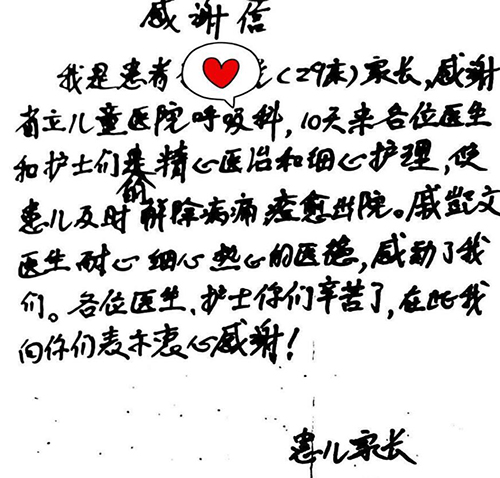 感谢信
我是患者（29床）家长，感谢
省立儿童医院呼吸科，10天来各位医生
和护士们的精心医治和细心护理，使
患儿及时解除病痛痊愈出院。戚凯文
医生耐心细心热心的医德，感动了我
们。各位医生、护士你们辛苦了，在此我
向你们表示衷心感谢！
患儿家长